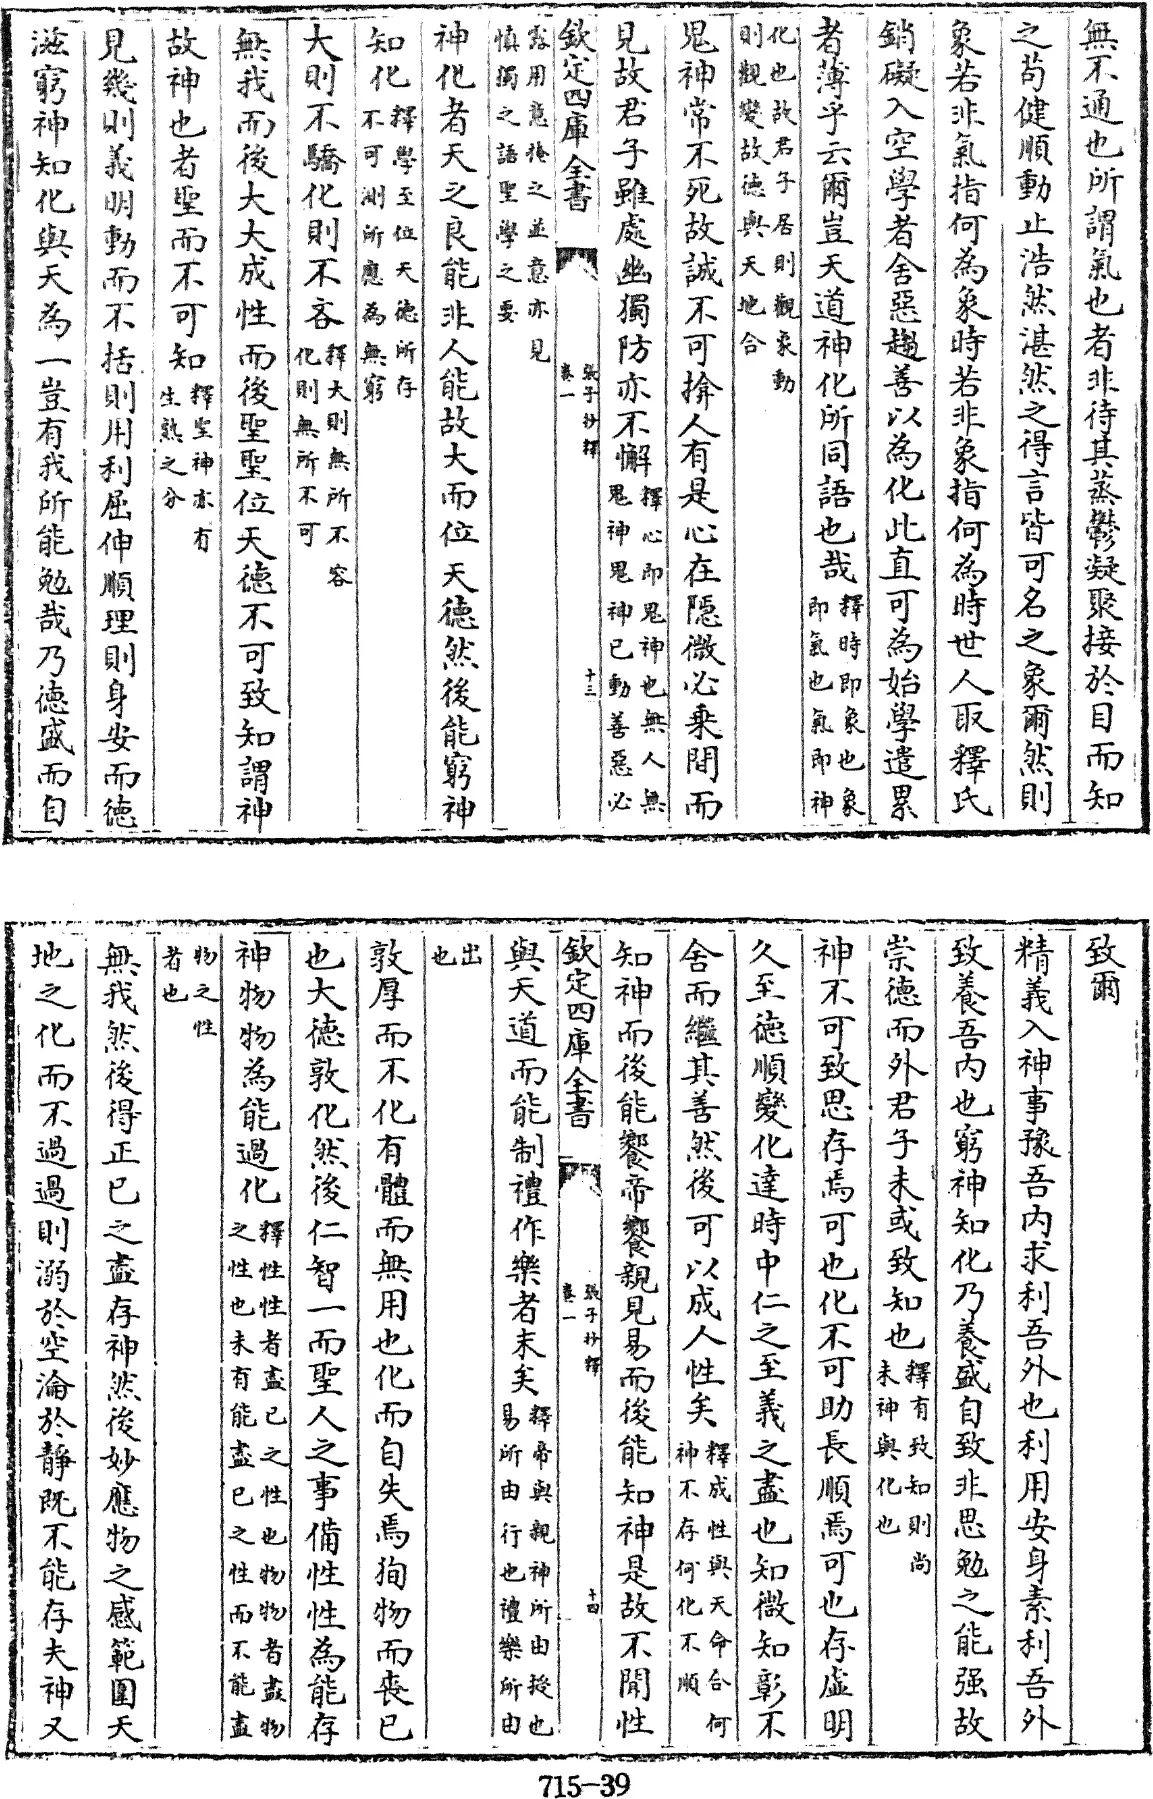 無不通也所謂氣也者非待其蒸鬱凝聚接於目而知
之苟健順動止浩然湛然之得言皆可名之象爾然則
象若非氣指何為象時若非象指何為時世人取釋氏
銷礙入空學者舍惡趨善以為化此直可為始學遣累
者薄乎云爾豈天道神化所同語也哉釋時即象也象
即氣也氣即神
化也故君子居則觀象動
則觀變故德與天地合
鬼神常不死故誠不可揜人有是心在隱微必乗閒而
見故君子雖處幽獨防亦不懈釋心即鬼神也無人無
鬼神鬼神已動善惡必
欽定四庫全書
張子抄釋
卷一
十三
露用意掩之並意亦見
慎獨之語聖學之要
神化者天之良能非人能故大而位天德然後能窮神
知化釋學至位天德所存
不可測所應為無窮
大則不驕化則不吝釋大則無所不容
化則無所不可
無我而後大大成性而後聖聖位天德不可致知謂神
故神也者聖而不可知釋聖神亦有
生熟之分
見幾則義明動而不括則用利屈伸順理則身安而德
滋窮神知化與天為一豈有我所能勉哉乃德盛而自
致爾
精義入神事豫吾内求利吾外也利用安身素利吾外
致養吾内也窮神知化乃養盛自致非思勉之能强故
崇德而外君子未或致知也釋有致知則尚
未神與化也
神不可致思存焉可也化不可助長順焉可也存虛明
久至德順變化達時中仁之至義之盡也知微知彰不
舍而繼其善然後可以成人性矣釋成性與天命合何
神不存何化不順
知神而後能饗帝饗親見易而後能知神是故不聞性
欽定四庫全書
張子抄釋
卷一
十四
與天道而能制禮作樂者末矣釋帝與親神所由授也
易所由行也禮樂所由
出
也
敦厚而不化有體而無用也化而自失焉狥物而喪已
也大德敦化然後仁智一而聖人之事備性性為能存
神物物為能過化釋性性者盡已之性也物物者盡物
之性也未有能盡已之性而不能盡
物之性
者也
無我然後得正已之盡存神然後妙應物之感範圍天
地之化而不過過則溺於空淪於靜既不能存夫神又
715-39